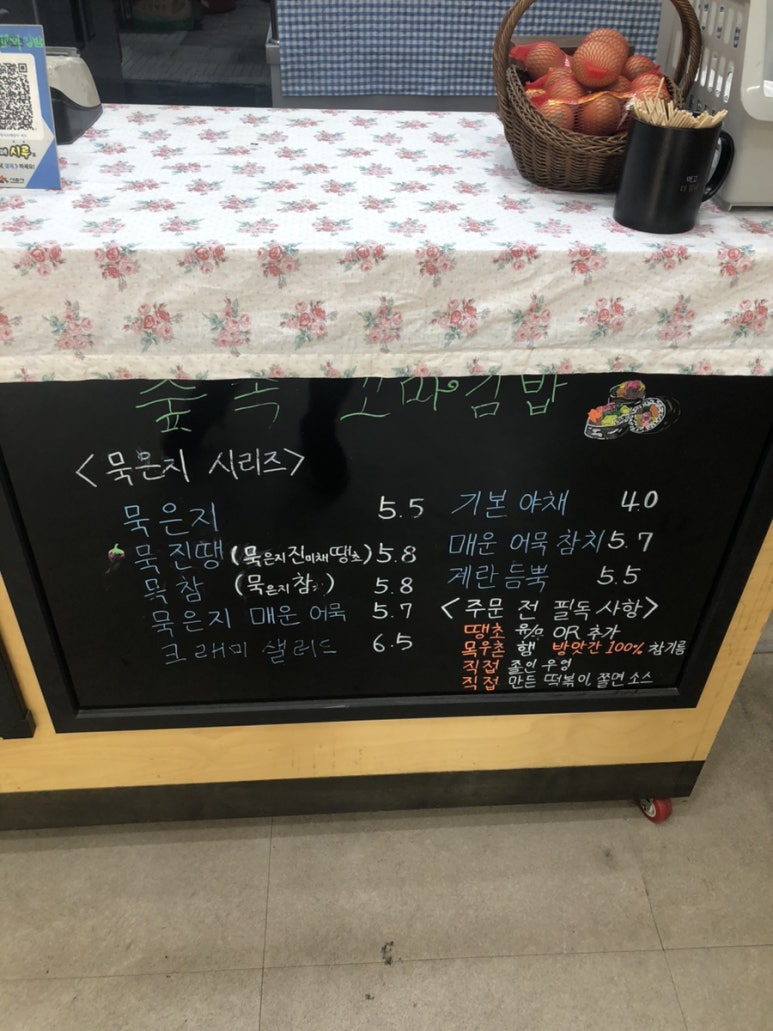 숲 속 꼬마김밥
<묵은지 시리즈>
묵은지 5.5
묵진땡 (묵은지진미채땡초) 5.8
묵참 (묵은지참치) 5.8
묵은지 매운 어묵 5.7
크래미 샐러드 6.5
기본 야채 4.0
매운 어묵 참치 5.7
계란 듬뿍 5.5
<주문 전 필독 사항>
땡초 유/무 OR 추가
목우촌 햄 방앗간 100% 참기름
직접 졸인 우엉
직접 만든 떡볶이, 쫄면 소스